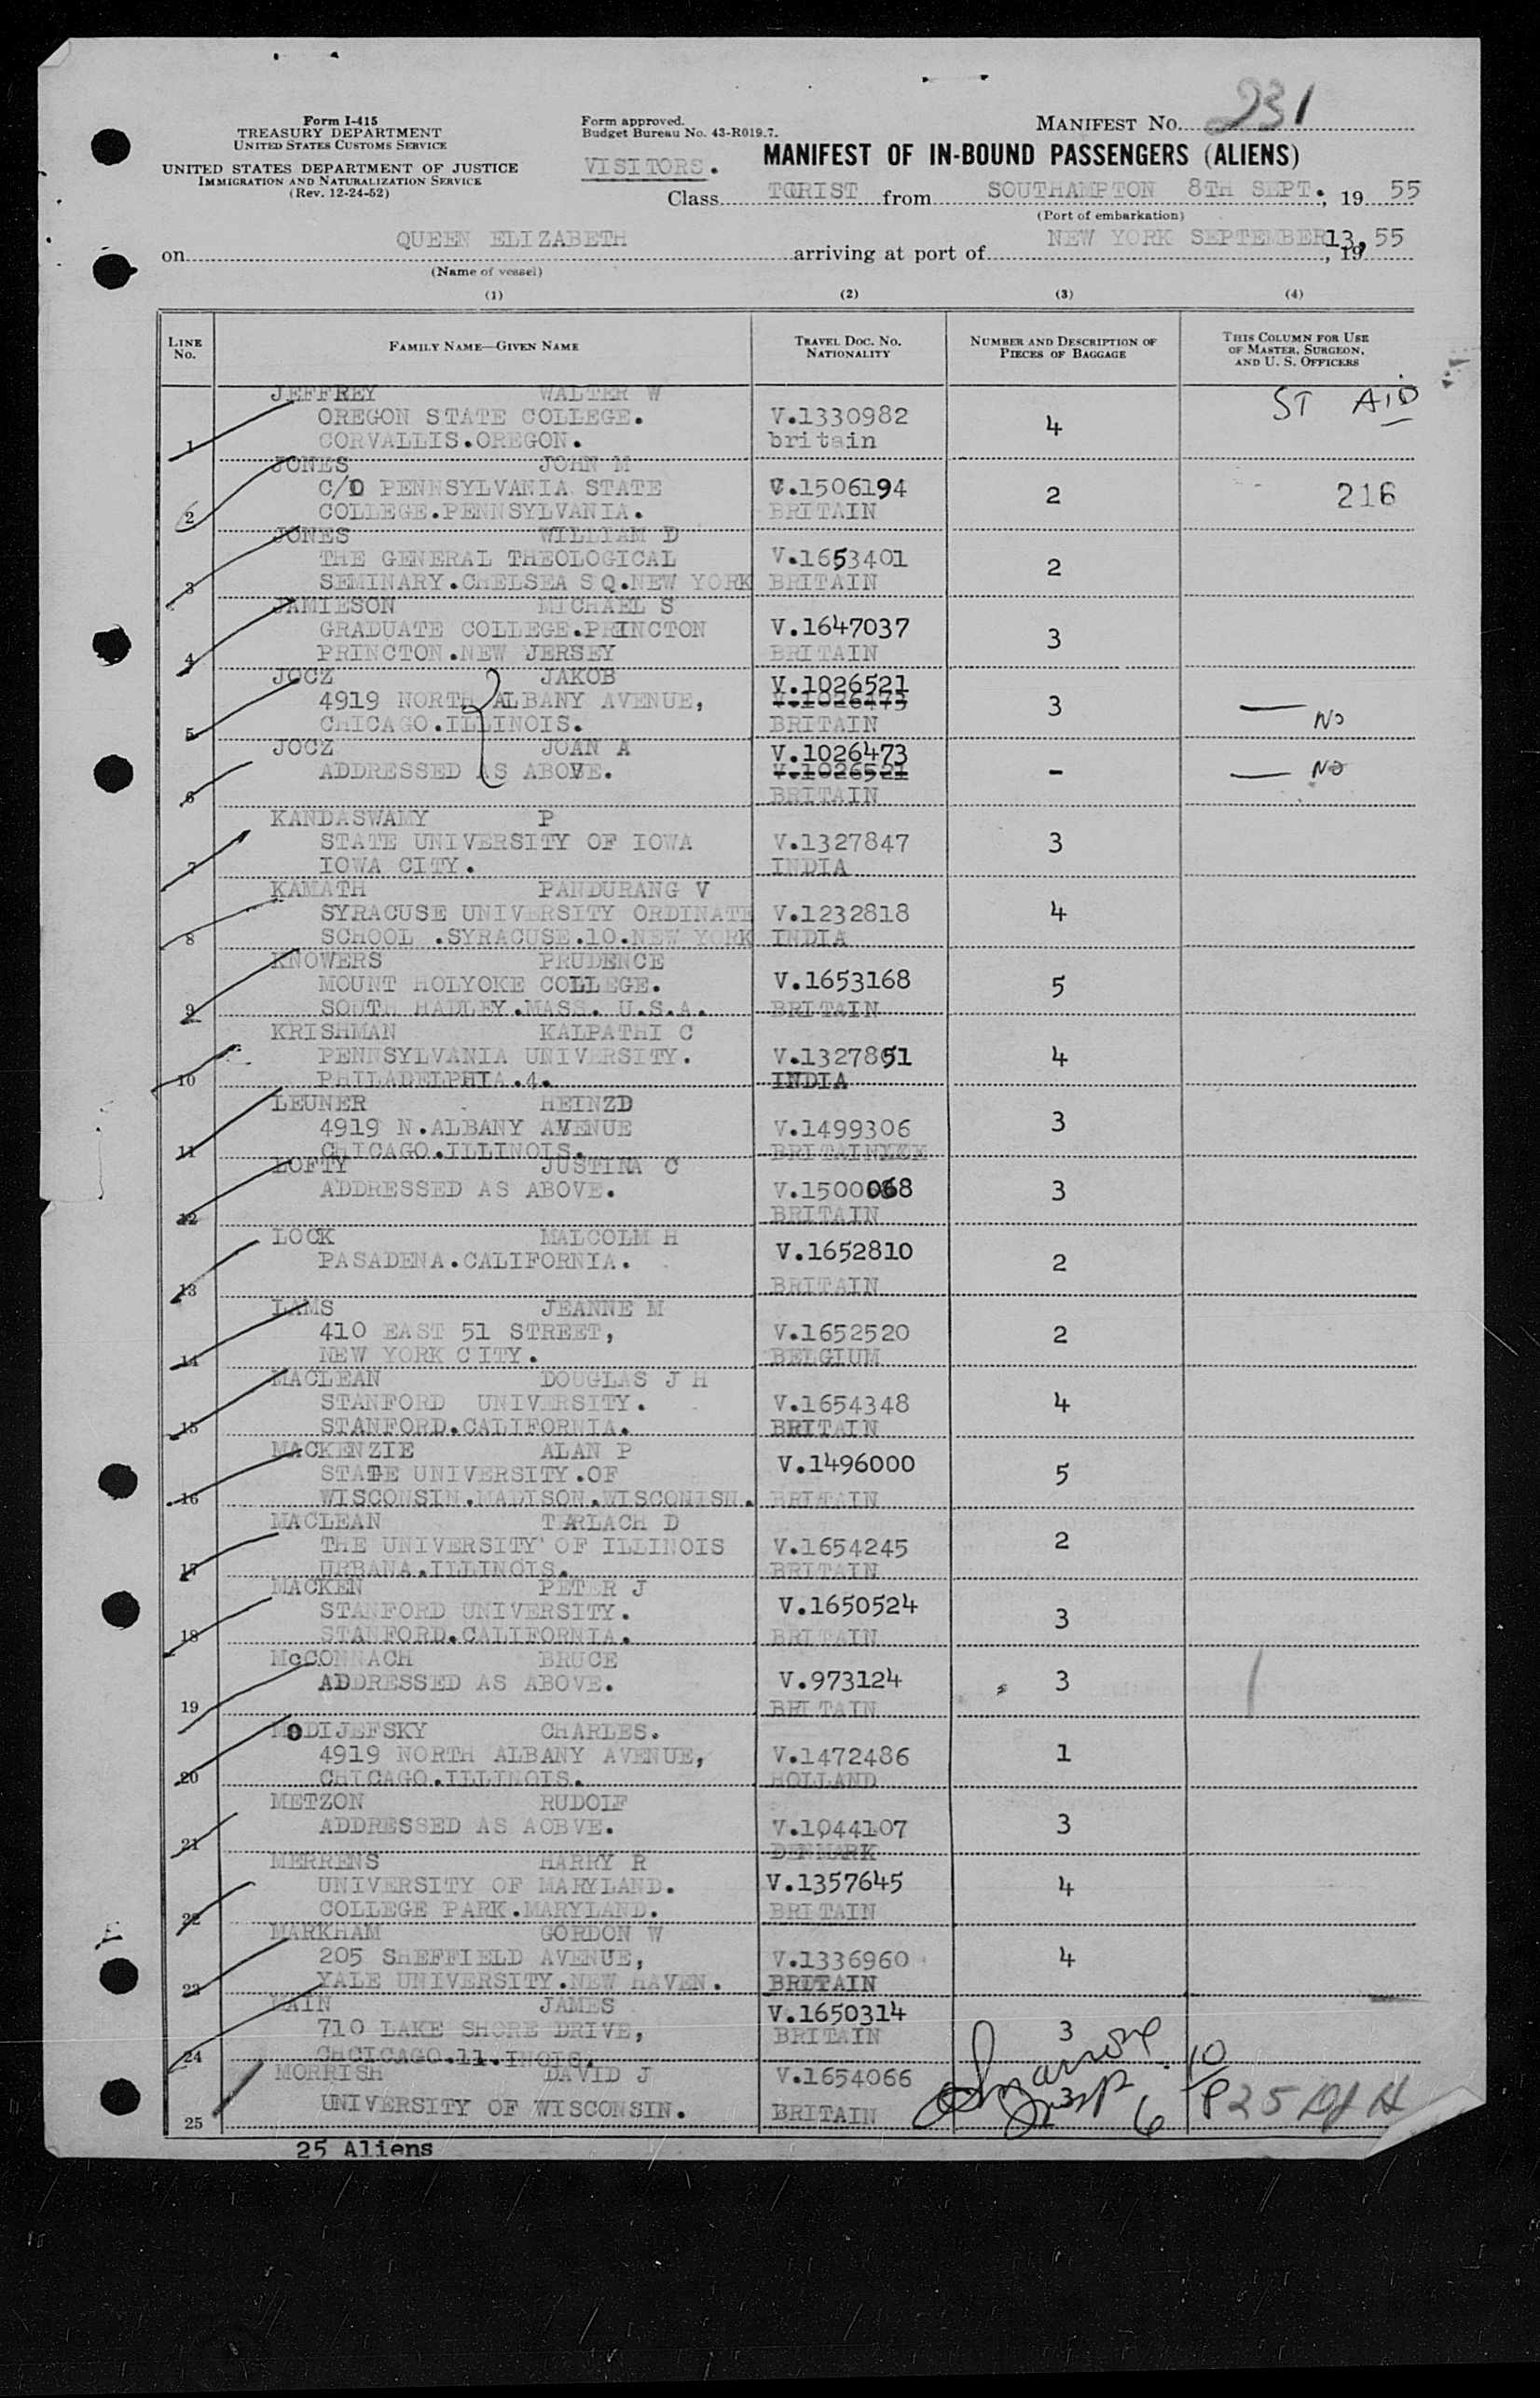 Form I-415
TREASURY DEPARTMENT
UNITED STATES CUSTOMS SERVICE
UNITED STATES DEPARTMENT OF JUSTICE
IMMIGRATION AND NATURALIZATION SERVICE
(Rev. 12-24-52)
Form approved.
Budget Bureau No. 43-R019.7.
VISITORS.
MANIFEST NO. 231
MANIFEST OF IN-BOUND PASSENGERS (ALIENS)
Class TORIST from SOUTHAMPTON 8TH SEPT., 19 55
(Port of embarkation)
on QUEEN ELIZABETH arriving at port of NEW YORK SEPTEMBER 13, 19 55
(Name of vessel)
(1) (2) (3) (4)
LINE NO. FAMILY NAME—GIVEN NAME TRAVEL DOC. NO. NATIONALITY NUMBER AND DESCRIPTION OF PIECES OF BAGGAGE THIS COLUMN FOR USE OF MASTER, SURGEON, AND U. S. OFFICERS
JEFFREY WALTER W ST AID
OREGON STATE COLLEGE. V.1330982 4
1 CORVALLIS.OREGON. britain
JONES JOHN M
C/O PENNSYLVANIA STATE V.1506194 2 216
2 COLLEGE.PENNSYLVANIA. BRITAIN
JONES WILLIAM D
THE GENERAL THEOLOGICAL V.1653401 2
3 SEMINARY.CHELSEA SQ.NEW YORK BRITAIN
JAMIESON MICHAEL S
GRADUATE COLLEGE.PRINCTON V.1647037 3
4 PRINCTON.NEW JERSEY BRITAIN
JOCZ JAKOB V.1026521
4919 NORTH ALBANY AVENUE, V.1026473 3
5 CHICAGO.ILLINOIS. BRITAIN — NO
JOCZ JOAN A V.1026473
ADDRESSED AS ABOVE. V.1026521 - — NO
6 BRITAIN
KANDASWAMY P
STATE UNIVERSITY OF IOWA V.1327847 3
7 IOWA CITY. INDIA
KAMATH PANDURANG V
SYRACUSE UNIVERSITY ORDINATE V.1232818 4
8 SCHOOL .SYRACUSE.10.NEW YORK INDIA
KNOWERS PRUDENCE
MOUNT HOLYOKE COLLEGE. V.1653168 5
9 SOUTH HADLEY.MASS. U.S.A. BRITAIN
KRISHMAN KALPATHI C
PENNSYLVANIA UNIVERSITY. V.1327851 4
10 PHILADELPHIA.4. INDIA
LEUNER HEINZD
4919 N.ALBANY AVENUE V.1499306 3
11 CHICAGO.ILLINOIS. BRITAIN
LOFTY JUSTINA C
ADDRESSED AS ABOVE. V.1500068 3
12 BRITAIN
LOCK MALCOLM H
PASADENA.CALIFORNIA. V.1652810 2
13 BRITAIN
LAMS JEANNE M
410 EAST 51 STREET, V.1652520 2
14 NEW YORK CITY. BELGIUM
MACLEAN DOUGLAS J H
STANFORD UNIVERSITY. V.1654348 4
15 STANFORD.CALIFORNIA. BRITAIN
MACKENZIE ALAN P
STATE UNIVERSITY.OF V.1496000 5
16 WISCONSIN.MADISON.WISCONISN. BRITAIN
MACLEAN TARLACH D
THE UNIVERSITY OF ILLINOIS V.1654245 2
17 URBANA.ILLINOIS. BRITAIN
MACKEN PETER J
STANFORD UNIVERSITY. V.1650524 3
18 STANFORD.CALIFORNIA. BRITAIN
McCONNACH BRUCE
ADDRESSED AS ABOVE. V.973124 3
19 BRITAIN
MODIJEFSKY CHARLES.
4919 NORTH ALBANY AVENUE, V.1472486 1
20 CHICAGO.ILLINOIS. HOLLAND
METZON RUDOLF
ADDRESSED AS AOBVE. V.1044107 3
21 DENMARK
MERRENS HARRY R
UNIVERSITY OF MARYLAND. V.1357645 4
22 COLLEGE PARK.MARYLAND. BRITAIN
MARKHAM GORDON W
205 SHEFFIELD AVENUE, V.1336960 4
23 YALE UNIVERSITY.NEW HAVEN. BRITAIN
JAMES V.1650314
710 LAKE SHORE DRIVE, BRITAIN 3
24 CHCICAGO.11.INOIS.
MORRISH DAVID J V.1654066 10
25 UNIVERSITY OF WISCONSIN. BRITAIN 6 P 25
25 Aliens